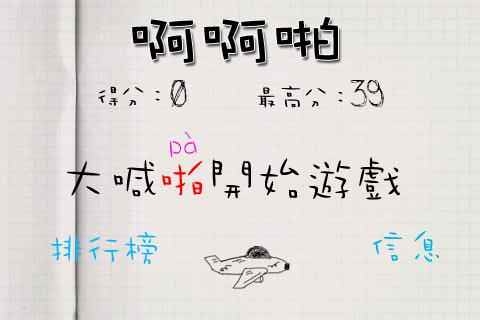 啊啊啪
得分：0 最高分：39
pà
大喊啪開始遊戲
排行榜 信息